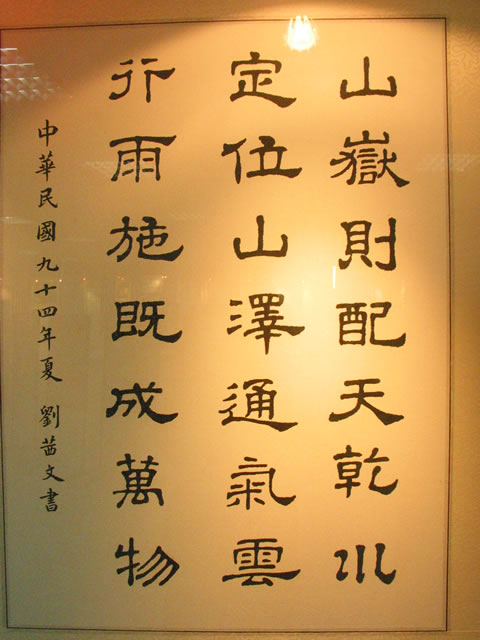 山嶽則配天乾巛
定位山澤通氣雲
行雨施既成萬物
中華民國九十四年夏 劉茜文書